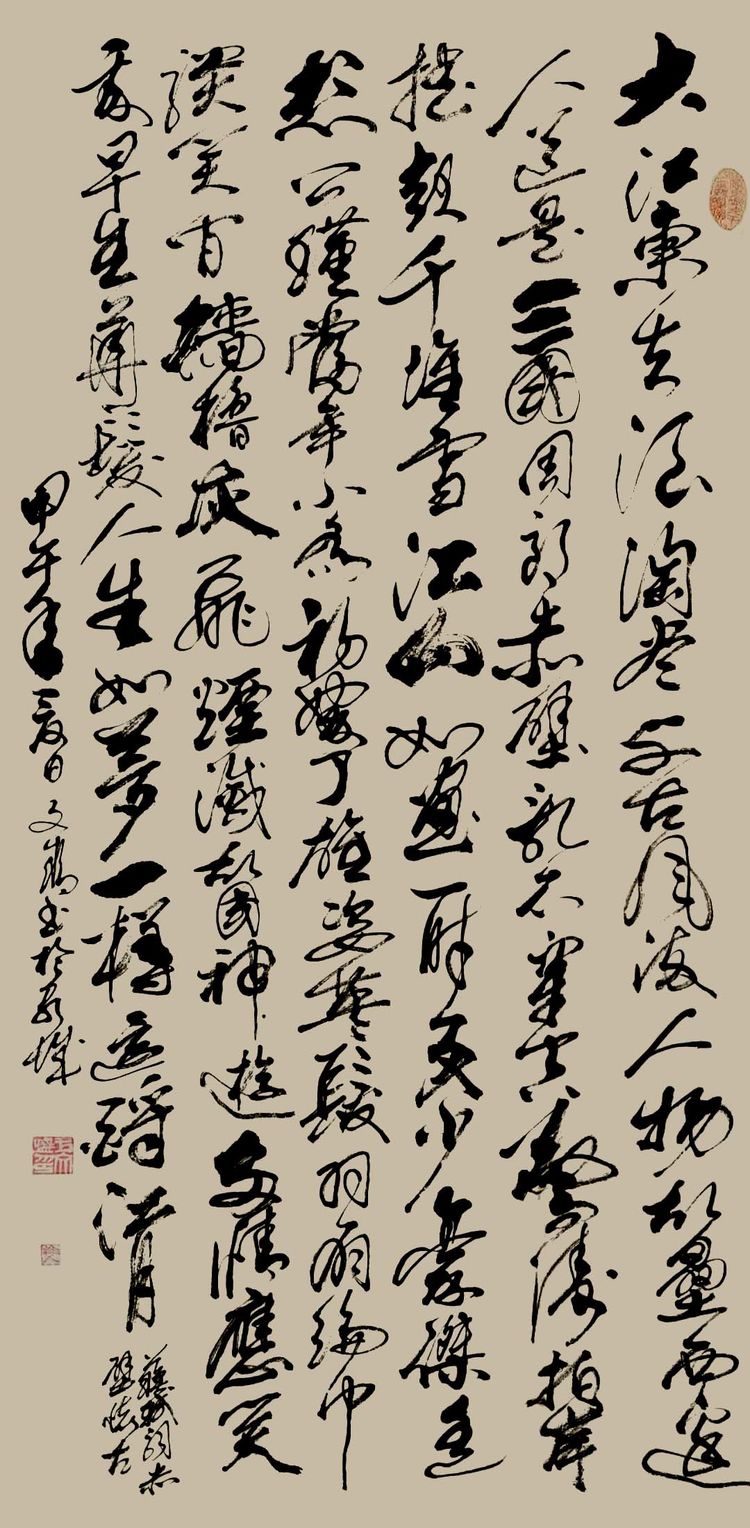 大江東去浪淘盡千古風流人物故壘西邊
人道是三國周郎赤壁亂石穿空驚濤拍岸
捲起千堆雪江山如畫一時多少豪傑遙
想公瑾當年小喬初嫁了雄姿英發羽扇綸巾
談笑間檣櫓灰飛煙滅故國神遊多情應笑
我早生華髮人生如夢一樽還酹江月
蘇軾詞赤
壁懷古
甲午年夏日文書於城